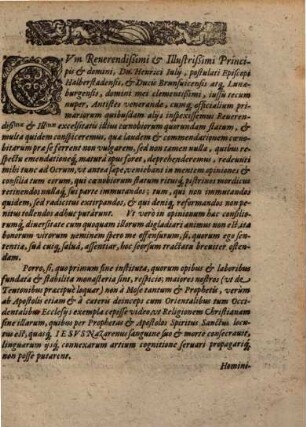 CVm Reuerendissimi & Illustrissimi Principis & domini, Dn. Henrici Iulij, postulati Episcopi
Halberstadensis, & Ducis Brunsuicensis atq; Lunæburgensis, domini mei clementissimi, iussu tecum
nuper, Antistes venerande, cumq; officialium primariorum quibusdam alijs inspexissemus Reuerendissimæ
& Illustrissimæ
multa quidem conspiceremus, qua laudem & commendationem cœnobitarum
pra se ferrent non vulgarem, sed non tamen nulla, quibus respectu
emendationeq; matura opus foret, deprehenderemus, redeunti
mihi tunc ad Ocrum, vt antea sæpe, veniebant in mentem opiniones &
consilia tum eorum, qui cœnobiorum statum risuq; pristinos mordicùs
retinendos nullaq; sui parte immutandos; tum, qui non immutandos
quidem, sed radicitus extirpandos, & qui deniq; reformandos non penitus
tollendos adhuc putârunt. Vt verò in opinionum hac consiliorumq;
diuersitate cum quoquam illorum digladiari animus non est, ita
bonorum virorum neminem spero me offensurum, si, quorum ego sententia,
siuè cuiq; salua, assentiar, hoc seorsum tractatu breuiter ostendam.
Porro, si, quo primum fine instituta, quorum opibus & laboribus
fundata & stabilita monasteria sint, respicio, maiores nostros (vt de
Teutonibus præcipuè loquar) non à Mose tantum & Prophetis, verùm
ab Apostolis etiam & à cæteris deinceps cum Orientalibus tum Occidentalibus
Ecclesijs exempla cepisse video, vt Religionem Christianam
sine illarum, quibus per Prophetas & Apostolos Spiritus Sanctus locutus
est, quasq; IESVS NaZarenus sanguine suo & morte consecrauit,
linguarum ijsq; connexarum artium cognitione seruari propagariq;
non posse putarent.
Homini-